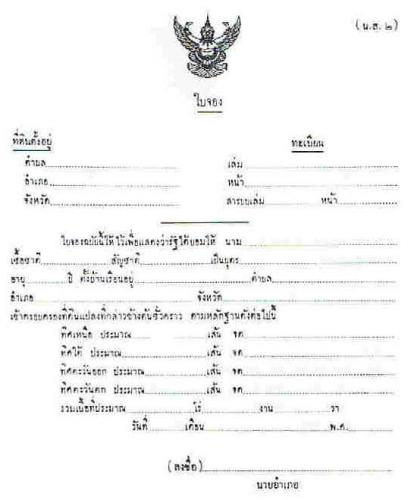 (น.ส. ๒)
ใบจอง
ที่ดินตั้งอยู่ ทะเบียน
ตำบล เล่ม
อำเภอ หน้า
จังหวัด สารบบเล่ม หน้า
ใบจองฉบับนี้ให้ไว้เพื่อแสดงว่ารัฐได้ยอมให้ นาม
เชื้อชาติ สัญชาติ เป็นบุตร
อายุ ปี ตั้งบ้านเรือนอยู่ ตำบล
อำเภอ จังหวัด
เข้าครอบครองที่ดินแปลงที่กล่าวข้างต้นชั่วคราว ตามหลักฐานดังต่อไปนี้
ทิศเหนือ ประมาณ เส้น จด
ทิศใต้ ประมาณ เส้น จด
ทิศตะวันออก ประมาณ เส้น จด
ทิศตะวันตก ประมาณ เส้น จด
รวมเนื้อที่ประมาณ ไร่ งาน วา
วันที่ เดือน พ.ศ.
(ลงชื่อ)
นายอำเภอ